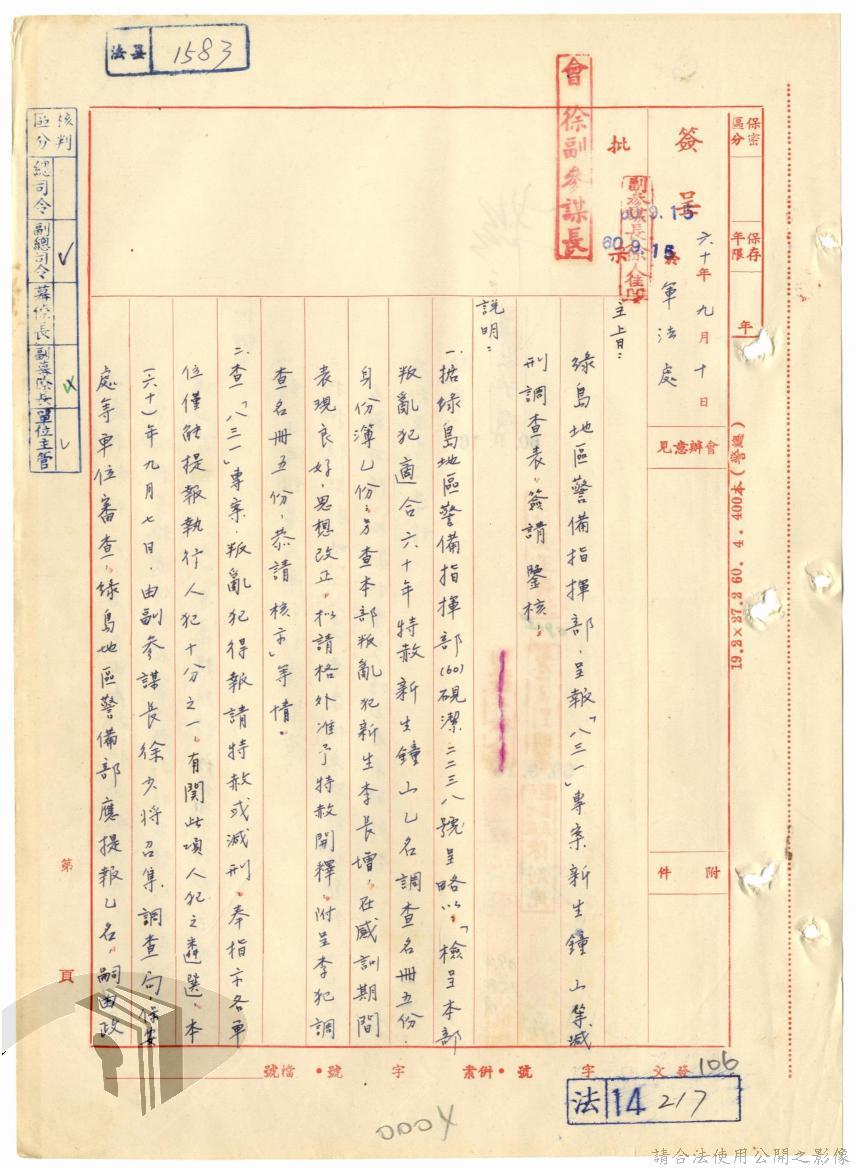 法墨 1583
保密區分
保存年限
年
簽呈
於軍法處
六十年九月十日
會辦意見
附件
批示
會徐副參謀長
60.9.15
60.9.15
主旨：
綠島地區警備指揮部，呈報「八三一」專案新生鐘山等減
刑調查表，簽請 鑒核。
說明：
一、據綠島地區警備指揮部(60)硯潔二二三八號呈略以「檢呈本部
叛亂犯適合六十年特赦新生鐘山乙名調查名冊五份，
身份簿乙份；另查本部叛亂犯新生李長增，在感訓期間
表現良好，思想改正，擬請格外准予特赦開釋，附呈李犯調
查名冊五份，恭請 核示」等情。
二、查「八三一」專案，叛亂犯得報請特赦或減刑。奉指示各單
位僅能提報執行人犯十分之一，有關此項人犯之遴選，本
(六十)年九月七日，由副參謀長徐少將召集，調查局，保安
處等單位審查，綠島地區警備部應提報乙名，嗣由政
第 頁
核判區分
總司令
副總司令 ✓
幕僚長
副幕僚長
單位主管 ✓
19.2×27.2 60. 4. 400本(警總)
發文 字 號•併案 字 號•檔號
106
法 14 217
4000
請合法使用公開之影像